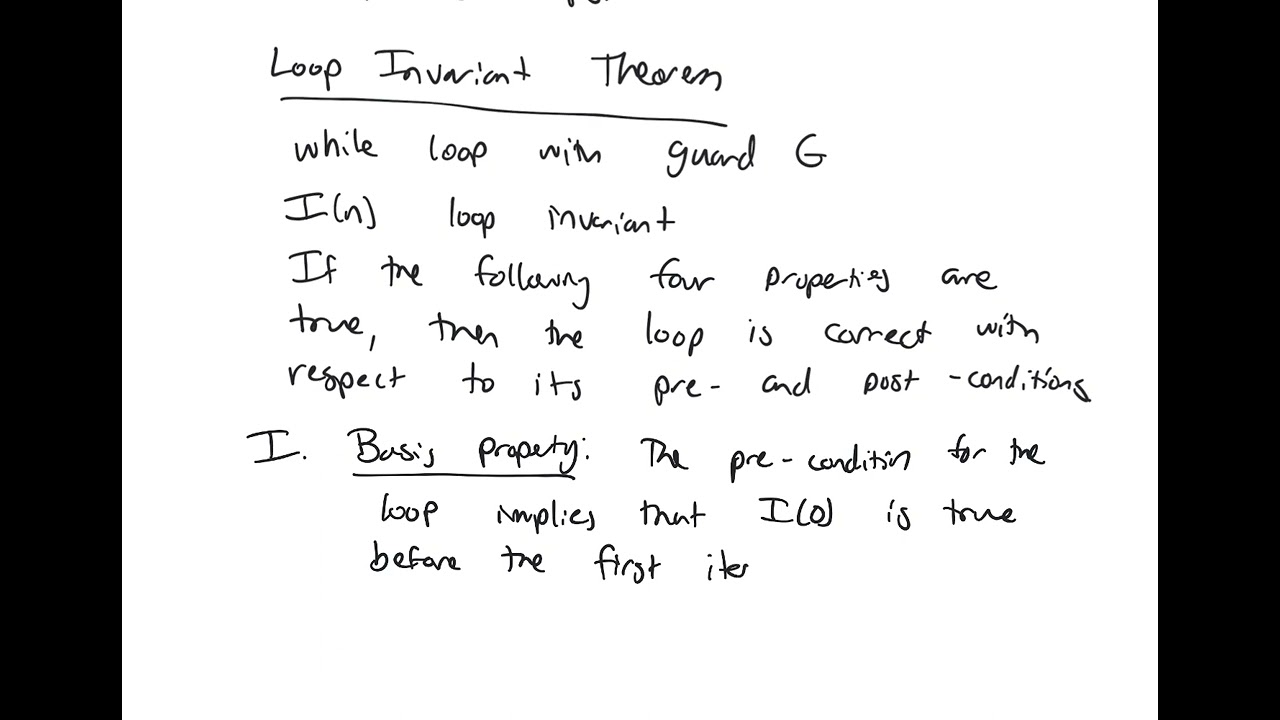 Loop Invariant Theorem
while loop with guard G
I(n) loop invariant
If the following four properties are
true, then the loop is correct with
respect to its pre- and post-conditions
I. Basis property: The pre-condition for the
loop implies that I(0) is true
before the first iter